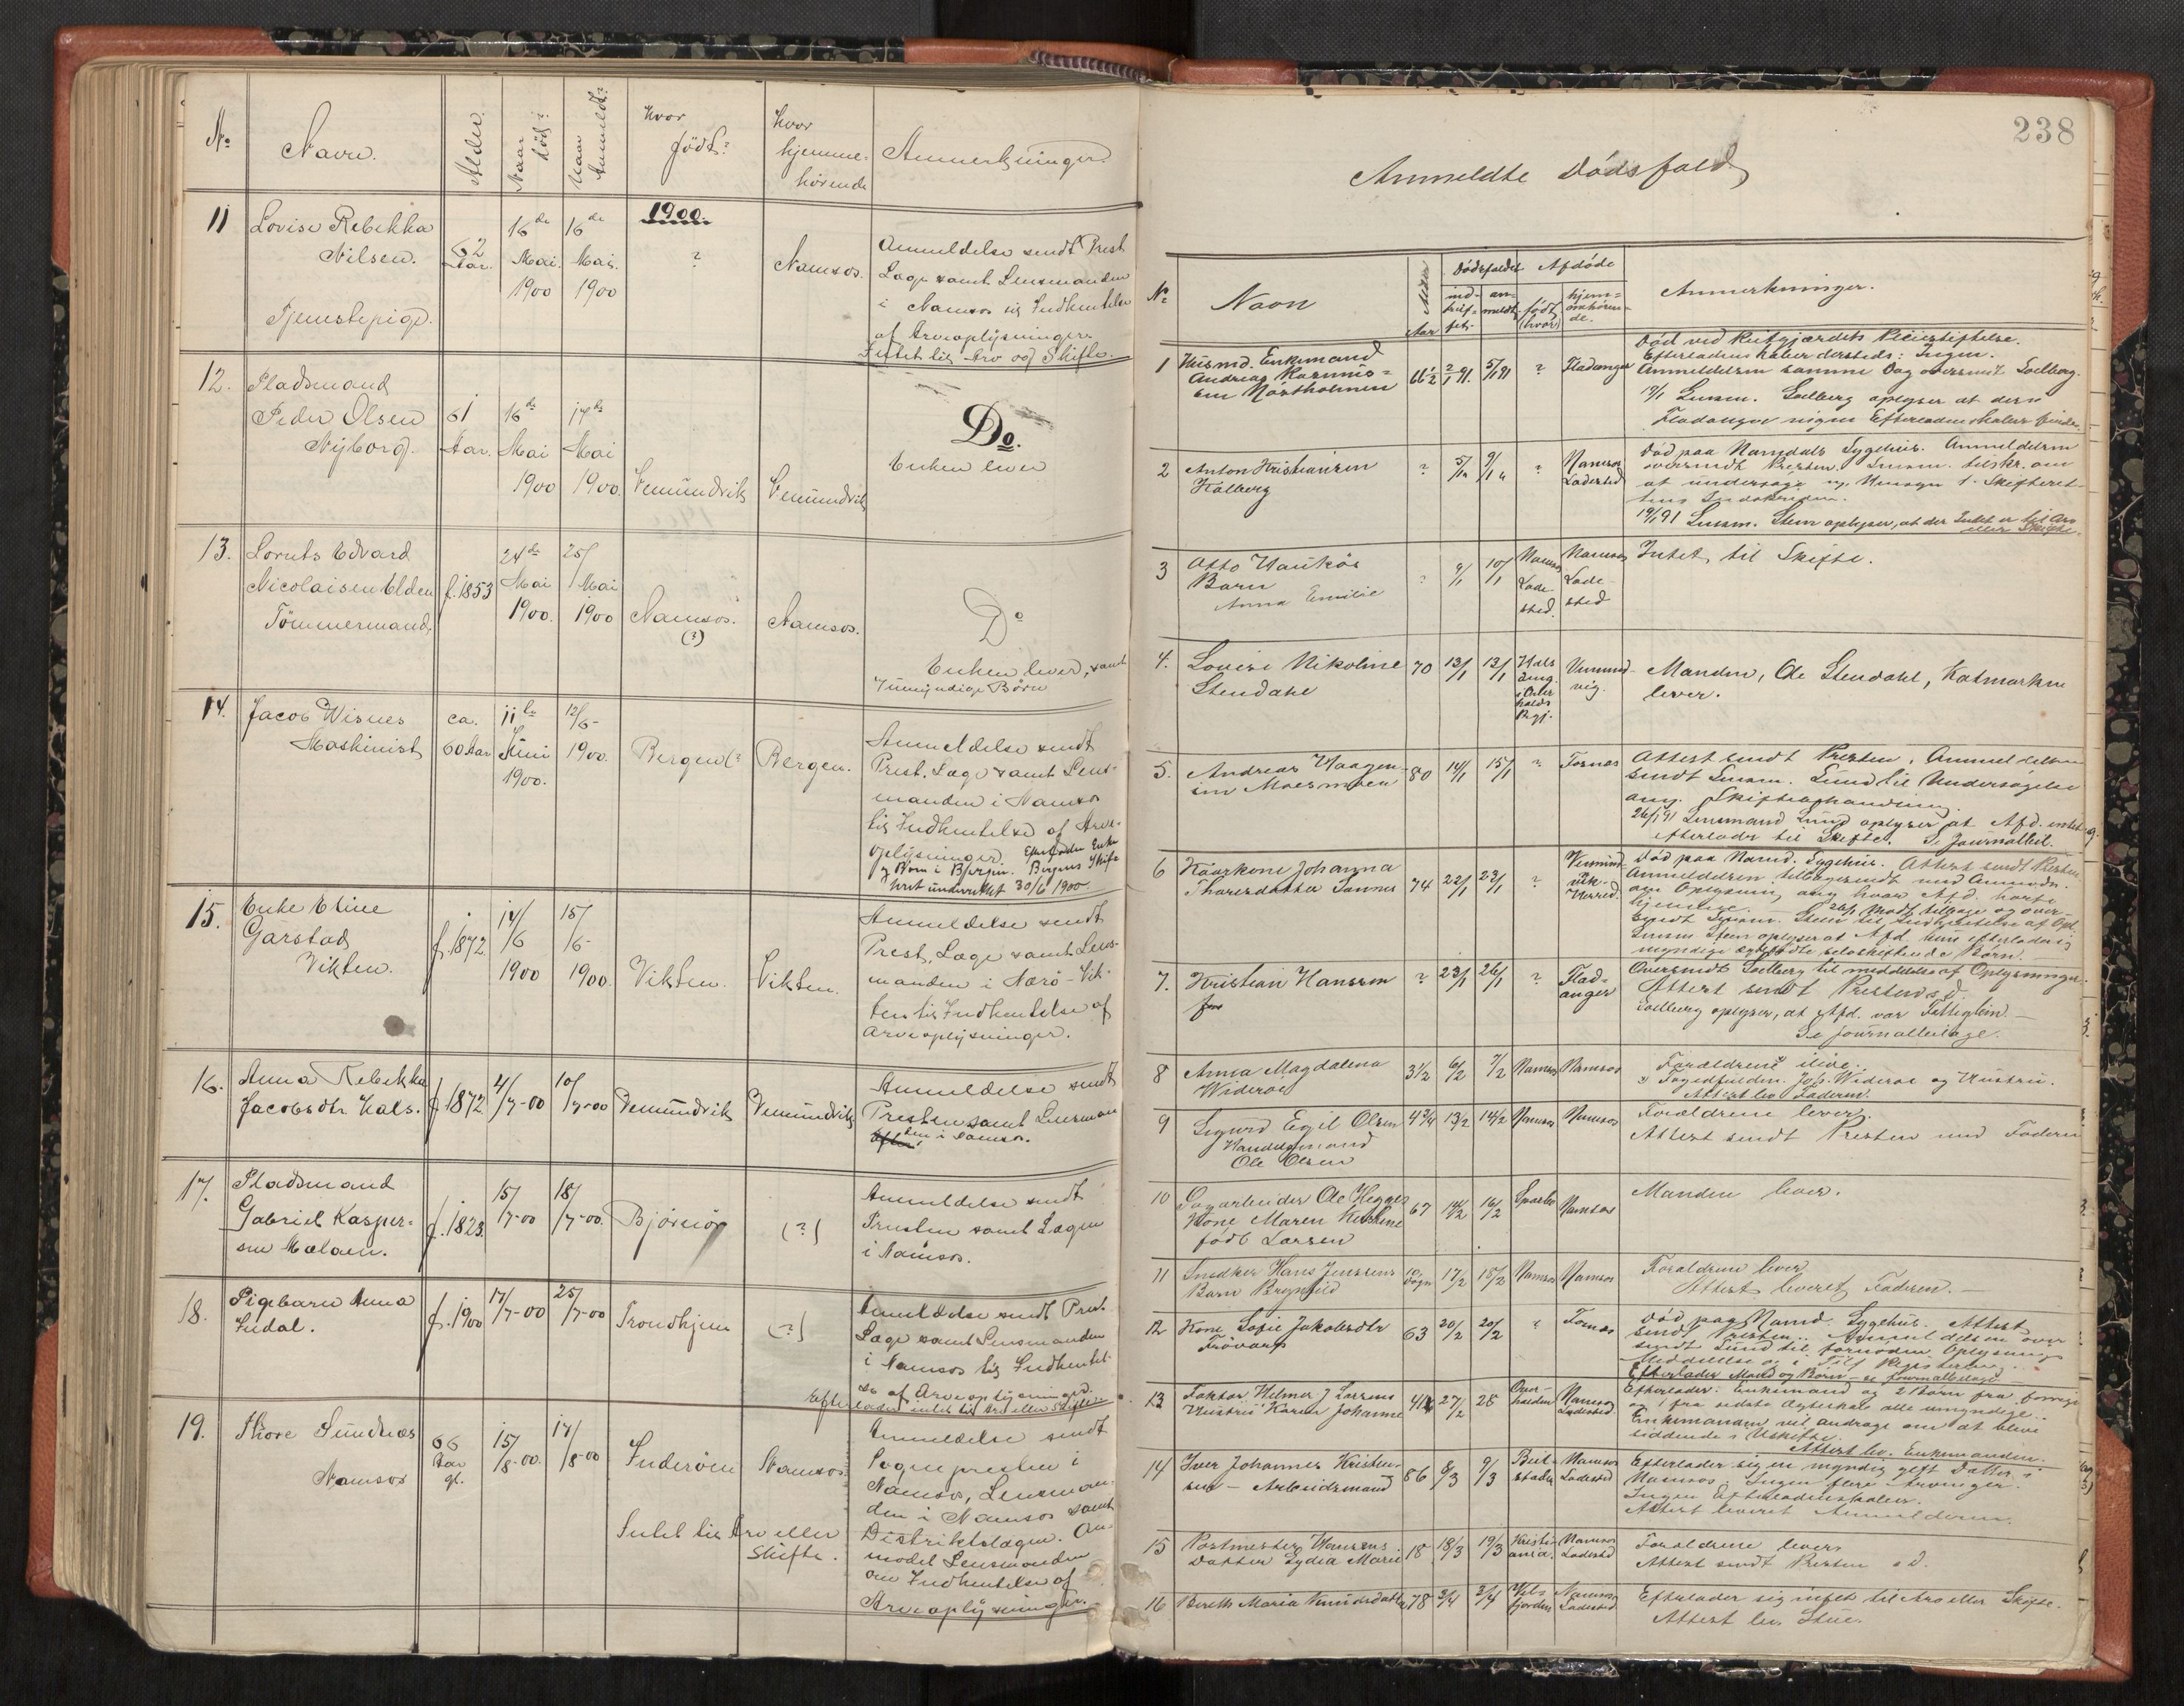 No
Navn.
Alder.
Naar død?
Naar Anmeldt?
Hvor født?
Hvor hjemme-
hørende
Anmerkninger.
1900.
11
Lovise Rebekka
Nilsen.
Tjenestepige.
62
Aar.
16de
Mai.
1900
16de
Mai.
1900
?
Namsos.
Anmeldelse sendt Prest
Læge samt Lensmanden
i Namsos til Indhentelse
af Arveoplysninger.
Intet til Arv og Skifte.
12.
Pladsmand
Peder Olsen
Nyborg.
61
Aar.
16de
Mai
1900
17de
Mai
1900.
Vemundvik
Vemundvik
Do.
Enken lever
13.
Lorents Edvard
Nicolaisen Elden
Tømmermand.
f. 1853
24de
Mai
1900.
25/
Mai
1900
Namsos.
(?)
Namsos.
Do
Enken lever, samt
7 umyndige Børn
14.
Jacob Wisnes
Maskinist
ca.
60 Aar
11te
Juni
1900.
12/6-
1900.
Bergen(?
Bergen.
Anmeldelse sendt
Prest, Læge samt Lens-
manden i Namsos
til Indhentelse af Arve-
oplysninger. Efterlader Enke
og Børn i Bergen. Bergens Skifte
ret underrettet 30/6 1900
15.
Enke Eline
Garstad
Vikten.
f. 1872.
14/
6
1900
15/
6-
1900.
Vikten.
Vikten.
Anmeldelse sendt
Prest, Læge samt Lens-
manden i Nærø-Vik-
ten til Indhentelse af
Arveoplysninger.
16.
Anna Rebekka
Jacobsdtr. Hals.
f. 1872
4/7-00
10/7-00
Vemundvik
Vemundvik
Anmeldelse sendt
Presten samt Lensman
den i Namsos.
17.
Pladsmand
Gabriel Kasper-
sen Mælaen.
f. 1823.
15/7-00
18/7-00.
Bjørnør
(?)
Anmeldelse sendt
Presten samt Lægen
i Namsos.
18.
Pigebarn Anna
Indal.
f. 1900
17/7-00
25/7-00
Trondhjem
(?)
Anmeldelse sendt Prest
Læge samt Lensmanden
i Namsos til Indhentel-
se af Arveoplysninger.
Efterlader intet til Arv eller Skifte.
19.
Thore Sundnæs
Namsos
66
Aar
gl.
15/8-00.
17/8-00
Inderøen
Namsos
Intet til Arv eller
Skifte.
Anmeldelse sendt
Sognepresten i
Namsos, Lensman-
den i Namsos samt
Distriktslægen. An-
modet Lensmanden
om Indhentelse af
Arveoplysninger.
238
Anmeldte Dødsfald
No
Navn
Alder
Aar
Dødsfaldet
ind-
truf-
fet.
an-
meldt
Afdøde
født
(hvor)
hjem-
mehøren-
de.
Anmerkninger.
1
Husmd. Enkemand
Andreas Rasmus-
sen Nøstholmen
66 1/2
2/1 91.
5/1 91
?
Fladanger
Død ved Reitgjærdets Pleiestiftelse.
Efterladenskaber dersteds: Ingen.
Anmeldelsen samme Dag oversendt Sælberg.
19/1 Lensm. Sælberg oplyser at der i
Fladanger ingen Efterladenskaber findes.
2
Anton Kristiansen
Kolberg
?
5/1
9/1
?
Namsos
Ladested
Død paa Namdals Sygehus. Anmeldelsen
oversendt Presten. Lensm. tilskr. om
at undersøge
19/1 91 Lensm. Steen oplyser, at der Intet er til Arv
eller Skifte.
3
Otto Haukøs
Barn
Anna Emilie
?
9/1
10/1
Namsos
Lade-
sted.
Namsos
Lade-
sted
Intet til Skifte.
4.
Lovise Nikoline
Stendahl
70
12/1
12/1
Hals
i Over
halds
Pgj.
Vemund-
vig.
Manden, Ole Stendahl, Katmarken
lever.
5.
Andreas Haagen-
sen Moesmoen
80
14/1
15/1
?
Fosnes
Attest sendt Presten. Anmeldelsen
sendt Lensm. Lund til Undersøgelse
ang. Skiftebehandling.
26/1 91 Lensmand Lund oplyser at Afd. intet
efterlader til Skifte. Se Journalbil.
6
Kaarkone Johanna
Tharesdatter Sanner
74
22/1
23/1
?
Vemund-
vik-
Herred.
Død paa Namd. Sygehus. Attest sendt Presten
Anmeldelsen tilbagesendt med Anmodn.
om Oplysning ang hvor Afd. hørte
hjemme. 26/1 Modt. tilbage og over-
sendt Lensm. Steen til Indhentelse af Opl.
Lensm Steen oplyser at Afd. kun efterlader
myndige selvskiftende Børn.
7.
Kristian Hanssen
?
23/1
26/1
?
Flad-
anger
Oversendt Sælberg til meddelelse af Oplysninger.
Attest sendt Presten s. d.
Sælberg oplyser, at Afd. var Fattiglem.
Se Journalbilage.
8
Anna Magdalena
Widerøe
3 1/2
6/2
7/2
Namsos
Namsos
Forældrene ilive.
Fogedfuldm. Joh. Widerøe og Hustru.
Attest lev Faderen.
9
Sigurd Egil Olsen
Handelsmand
Ole Olsen
4 3/4
13/2
14/2
Namsos
Namsos
Forældrene lever.
Attest sendt Presten med Faderen
10
Sagarbeider Ole Hegges
Kone Maren Kirstine
født Larsen
67
14/2
16/2
Sparbo
Namsos
Manden lever.
11
Snedker Hans Jenssens
Barn Brynhild
10
Døgn
17/2
18/2
Namsos
Namsos
Forældrene lever
Attest leveret Faderen.
12
Kone Sofie Jakobsdtr
Frøvarp
63
20/2
20/2
?
Fosnes
Død paa Namd. Sygehus. Attest
sendt Presten. Anmeldelsen over
sendt Lund til fornøden Oplysnings
Meddelelse og i Tilf Registering.
Efterlader Mand og Børn - se Journalbilage
13
Faktor Helmer J Larsens
Hustru Karen Johanne
27/2
28
Over-
halden
Namsos
Ladested
Efterlader: Enkemand og 2 Børn fra forrige
og 1 fra sidste Ægteskab alle umyndige.
Enkemanden vil andrage om at blive
siddende i Uskifte.
Attest lev. Enkemanden.
14
Iver Johannes Kristen-
sen - Arbeidsmand
86
8/3
9/3
Beit-
staden
Namsos
Ladested
Efterlader sig en myndig gift Datter i
Namsos. Ingen flere Arvinger.
Ingen Efterladenskaber.
Attest leveret Anmelderen.
15
Postmester Hansens
Datter Lydia Marie
18
18/3
19/3
Kristi-
ania.
Namsos
Ladested
Forældrene lever
Attest sendt Presten s d.
16
Bereth Maria Knudsdatter
78
2/4
3/4
Vels
fjorden
Namsos
Ladested
Efterlader sig intet til Arv eller Skifte.
Attest lev